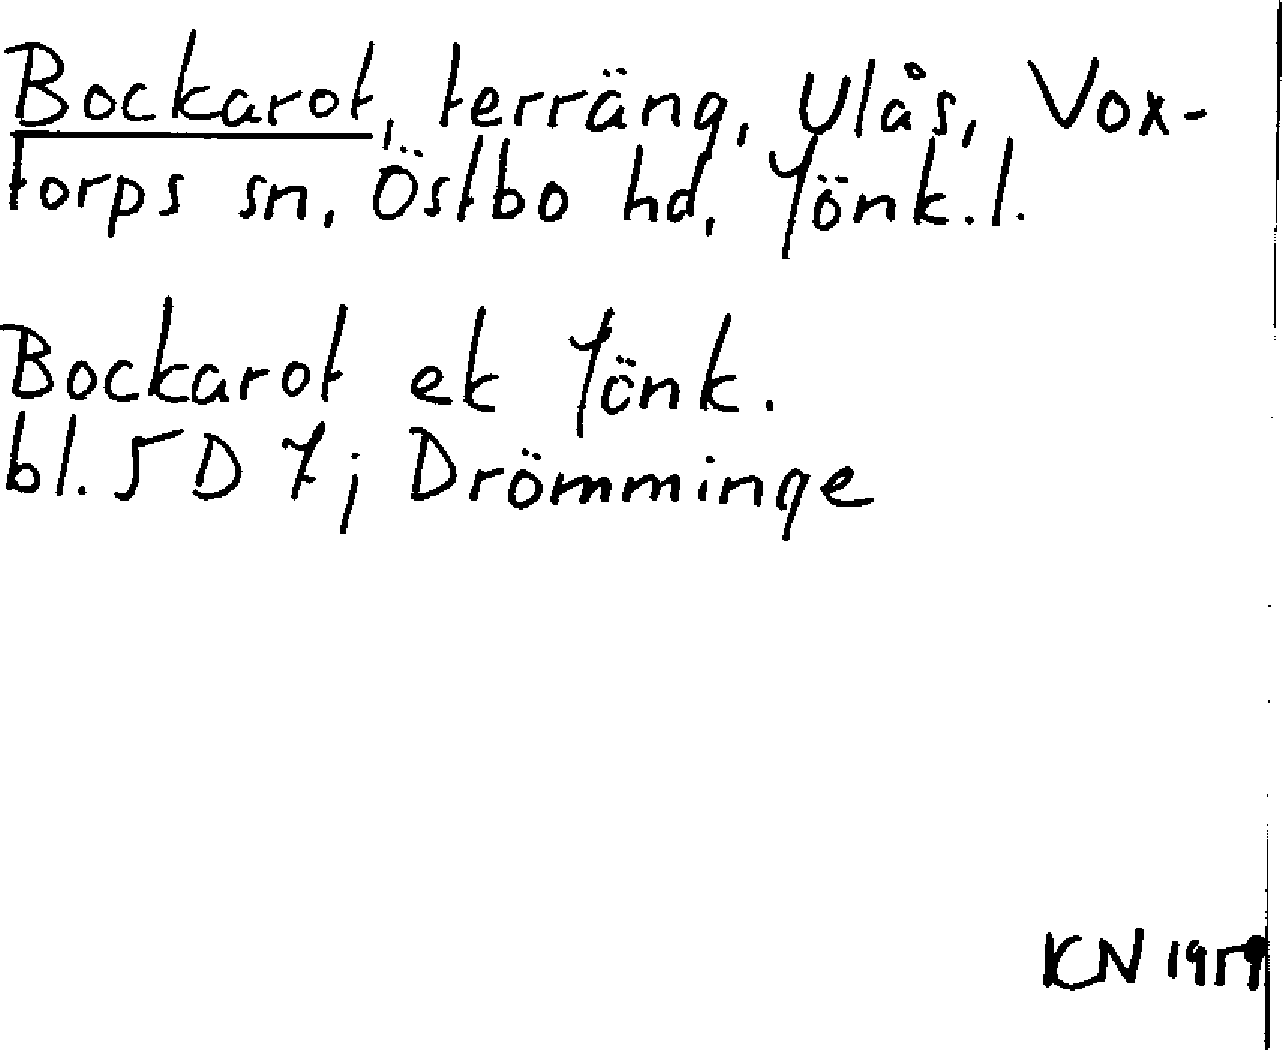 Bockarot, terräng, Ulås, Vox-
torps sn, Östbo hd, Jönk.l.
Bockarot ek Jönk.
bl. 5 D 7; Drömminge
KN 1959